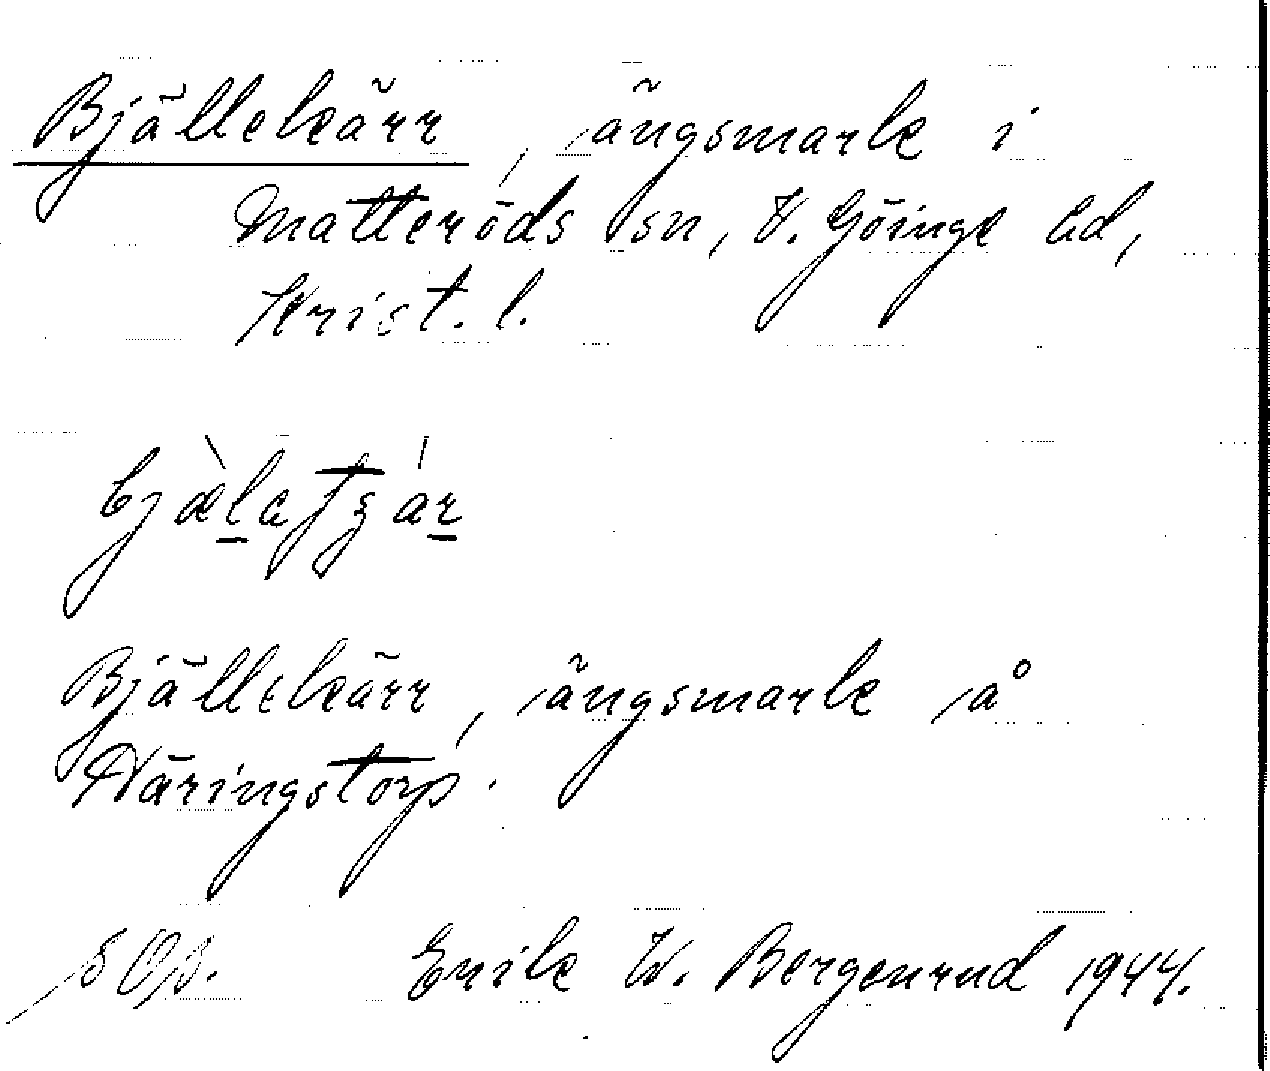 Bjällekärr, ängsmark i
Matteröds sn, V. Göinge hd,
Krist. l.
Bjällekärr, ängsmark å
Näringstorp.
Erik W. Bergenrud 1944.